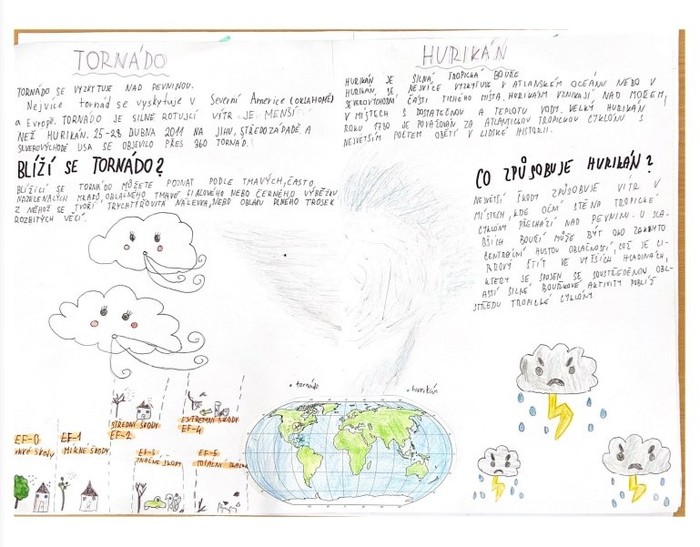 TORNÁDO
TORNÁDO SE VYZKYTUJE NAD PEVNINOU.
Nejvíce tornád se vyskytuje v Severní Americe (OKLAHOMĚ)
a Evropě. TORNÁDO JE SILNĚ ROTUJÍCÍ VÍTR JE MENŠÍ
NEŽ HURIKÁN. 25-28 DUBNA 2011 NA JIHU, STŘEDOZÁPADĚ A
SEVEROVÝCHODĚ USA SE OBJEVILO PŘES 360 TORNÁD.
BLÍŽÍ SE TORNADO?
BLÍŽÍCÍ SE TORNÁDO MŮŽETE POZNAT PODLE TMAVÝCH, ČASTO
NAZELENALÝCH MRAKŮ, OBLAČNÉHO TMAVĚ ŠEDOVÉHO NEBO ČERNÉHO VÝBĚŽKU,
Z NĚHOŽ SE TVOŘÍ TRYCHTÝŘOVITÁ NÁLEVKA, NEBO OBLAKU PLNÉHO TROSEK
ROZBITÝCH VĚCÍ.
HURIKÁN
HURIKÁN JE SILNÁ TROPICKÁ BOUŘE
HURIKÁN, SE NEJVÍCE VYZKYTUJE V ATLANSKÉM OCEÁNU NEBO V
SEVEROVÝCHODNÍ ČÁSTI TICHÉHO MÍSTA, HURIKÁNY VZNIKAJÍ NAD MOŘEM,
V MÍSTECH S DOSTATEČNOU A TEPLOTU VODY. VELKÝ HURIKÁN
ROKU 1780 JE POVAŽOVÁN ZA ATLANTICKOU TROPICKOU CYKLÓNU S
NEJVĚTŠÍM POČTEM OBĚTÍ V LIDSKÉ HISTORII.
CO ZPŮSOBUJE HURIKÁN?
NEJVĚTŠÍ ŠKODY ZPŮSOBUJE VÍTR V
MÍSTECH, KDE OČNÍ STĚNA TROPICKÉ
CYKLÓNY PŘECHÁZÍ NAD PEVNINU. U SLA-
BŠÍCH BOUŘÍ MŮŽE BÝT OKO ZAKRYTO
CENTRÁLNÍ HUSTOU OBLAČNOSTÍ, COŽ JE CI-
ROVÝ ŠTÍT VE VYŠŠÍCH HLADINÁCH,
KTERÝ JE SPOJEN SE SOUSTŘEDĚNOU OBL-
ASTÍ SILNÉ BOUŘKOVÉ AKTIVITY POBLÍŽ
STŘEDU TROPICKÉ CYKLÓNY.
tornádo
hurikán
EXTRÉMNÍ ŠKODY
EF-4
STŘEDNÍ ŠKODY
EF-2
EF-0
EF-1
MÍRNÉ ŠKODY
EF-3
ZNAČNÉ ŠKODY
EF-5
TOTÁLNÍ